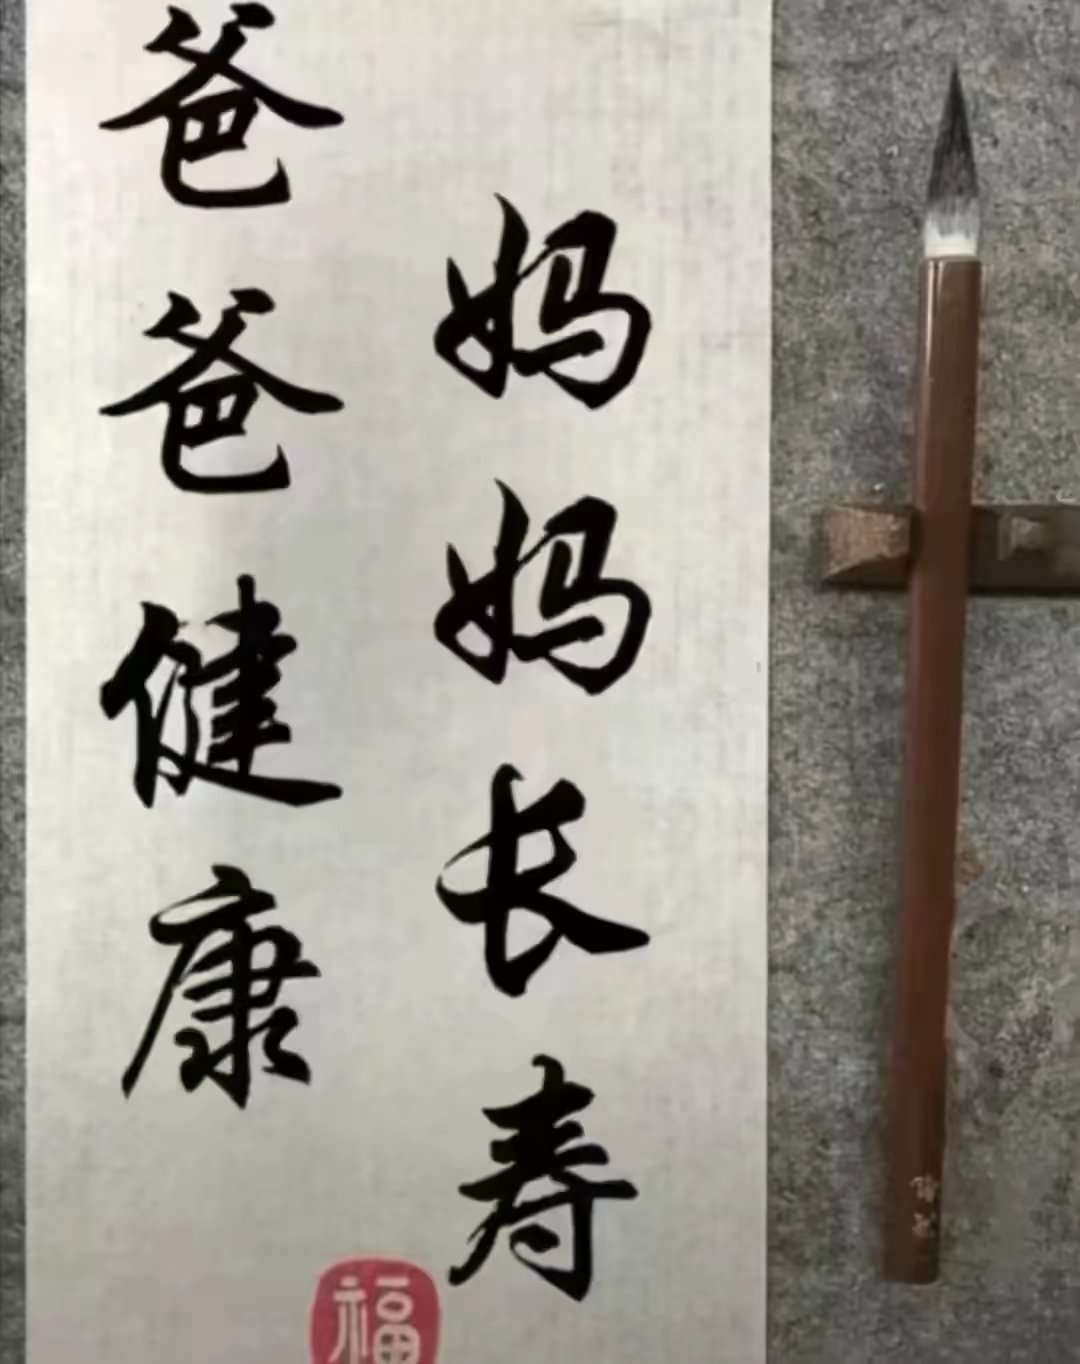 爸爸健康
妈妈长寿
福